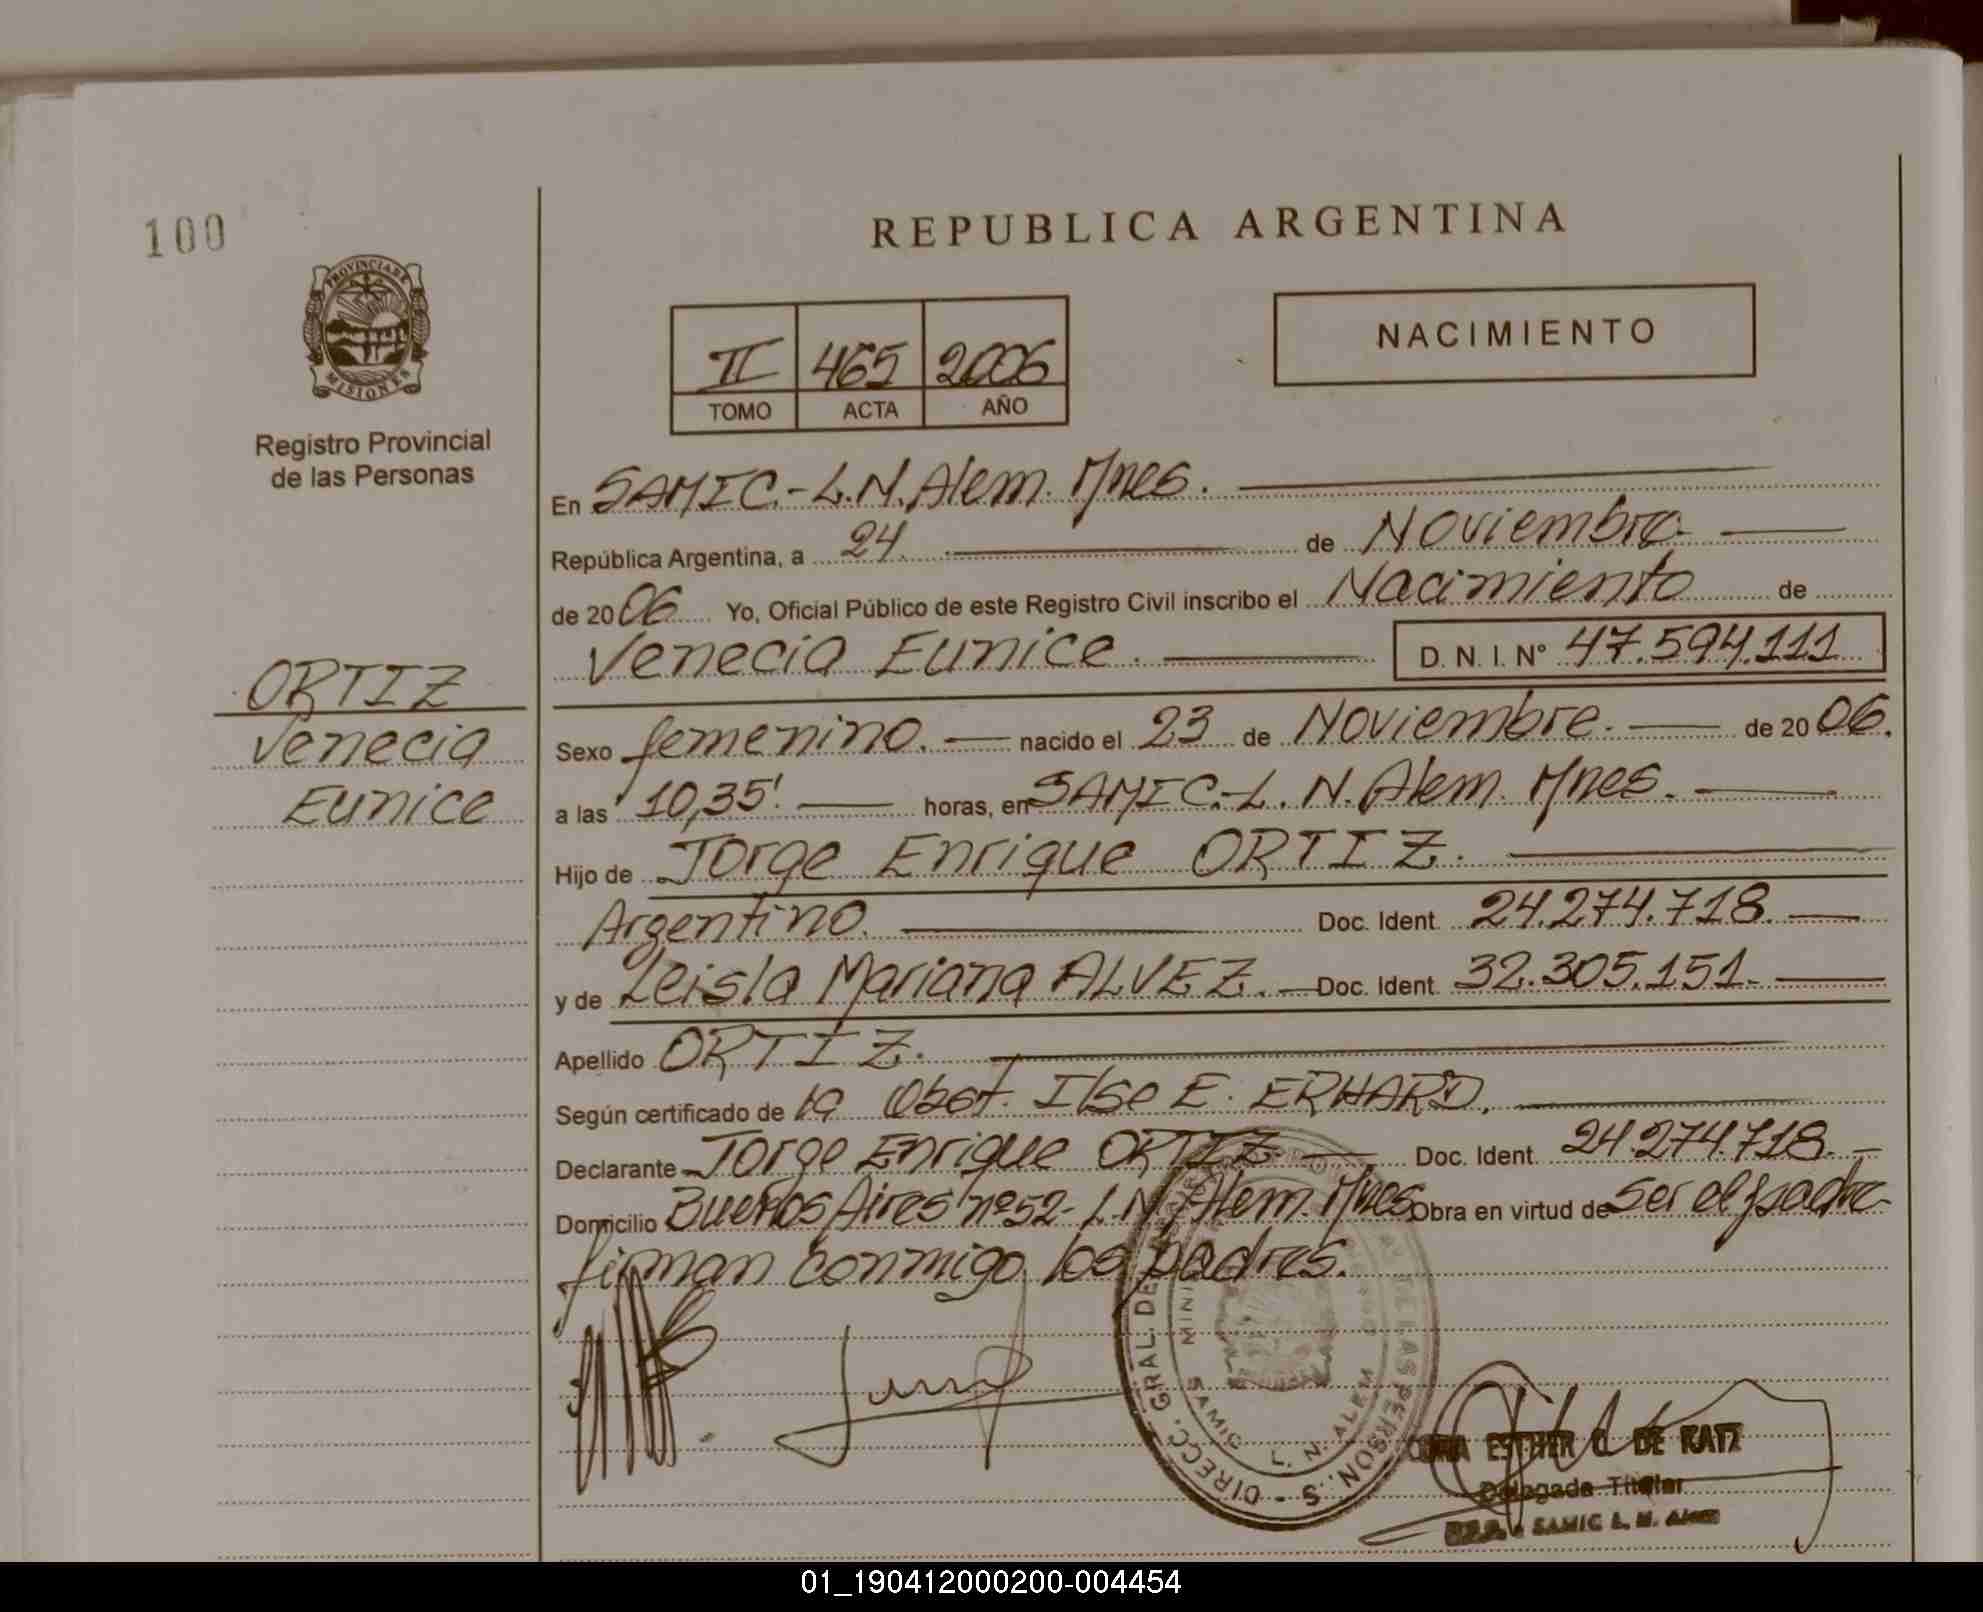 100
REPUBLICA ARGENTINA
PROVINCIA DE
MISIONES
Registro Provincial
de las Personas
II 465 2006
TOMO ACTA AÑO
NACIMIENTO
En SAMIC.-L.N.Alem. Mnes.
República Argentina, a 24. de Noviembre
de 2006 Yo, Oficial Público de este Registro Civil inscribo el Nacimiento de
Venecia Eunice. D. N. I. N° 47.594.111
ORTIZ
Venecia
Eunice
Sexo femenino. nacido el 23 de Noviembre. de 2006.
a las 10,35'. horas, en SAMIC.-L.N.Alem. Mnes.
Hijo de Jorge Enrique ORTIZ.
Argentino. Doc. Ident. 24.274.718.
y de Leisla Mariana ALVEZ. Doc. Ident. 32.305.151.
Apellido ORTIZ.
Según certificado de la Obst. Ilse E. ERHARD.
Declarante Jorge Enrique ORTIZ Doc. Ident. 24.274.718.
Domicilio Buenos Aires nº52-L.N.Alem. Mnes Obra en virtud de ser el padre
firman conmigo los padres.
DIRECC. GRAL. DE LAS PERSON.
SAMIC L. N. ALEM
ESTHER DE KATZ
Delegada Titular
SAMIC L. N. Alem
01_190412000200-004454